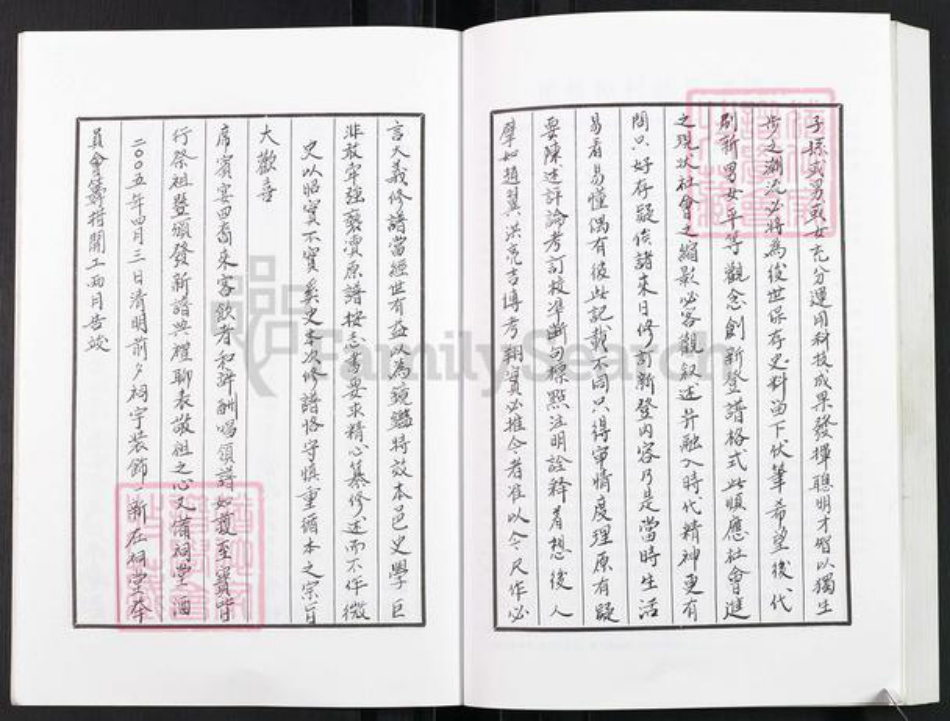 子孫或男或女充分運用科技成果發揮聰明才智以獨生
步之潮流必將為後世保存史料留下伏筆希望後代
刷新男女平等觀念創新登譜格式此順應社會進
之現狀社會之縮影必客觀叙述并融入時代精神更有
間只好存疑俟諸來日修訂新登內容乃是當時生活
易看易懂偶有彼此記載不同只得審情度理原有疑
要陳述評論考訂校準斷句標點注明詮釋着想後人
譬如趙翼洪亮吉博考翔實必推今者准以今尺作必
言大義修譜當經世有益以為鏡鑑特效本邑史學巨
非敢牢強褻瀆原譜按志書要求精心纂修述而不作微
史以昭實不實奚史本次修譜恪守慎重循本之宗旨
大歡喜
席賓宴四裔來客飲者和詳酬唱領譜如獲至寶皆
行祭祖暨頒發新譜典禮聊表敬祖之心又蒲祠堂酒
二00五年四月三日清明前夕祠宇裝飾一新在祠堂本
員會籌措開工兩月告竣
FamilySearch